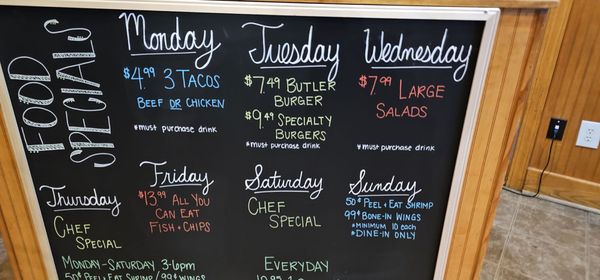 FOOD
SPECIALS
Monday
$4.99 3 TACOS
BEEF OR CHICKEN
*MUST PURCHASE DRINK
Tuesday
$7.49 BUTLER
BURGER
$9.49 SPECIALTY
BURGERS
*MUST PURCHASE DRINK
Wednesday
$7.99 LARGE
SALADS
*MUST PURCHASE DRINK
Thursday
CHEF
SPECIAL
Friday
$13.99 ALL YOU
CAN EAT
FISH + CHIPS
Saturday
CHEF
SPECIAL
Sunday
50¢ PEEL + EAT SHRIMP
99¢ BONE-IN WINGS
*MINIMUM 10 EACH
*DINE-IN ONLY
MONDAY-SATURDAY 3-6PM
50¢ PEEL + EAT SHRIMP/99¢ WINGS
EVERYDAY